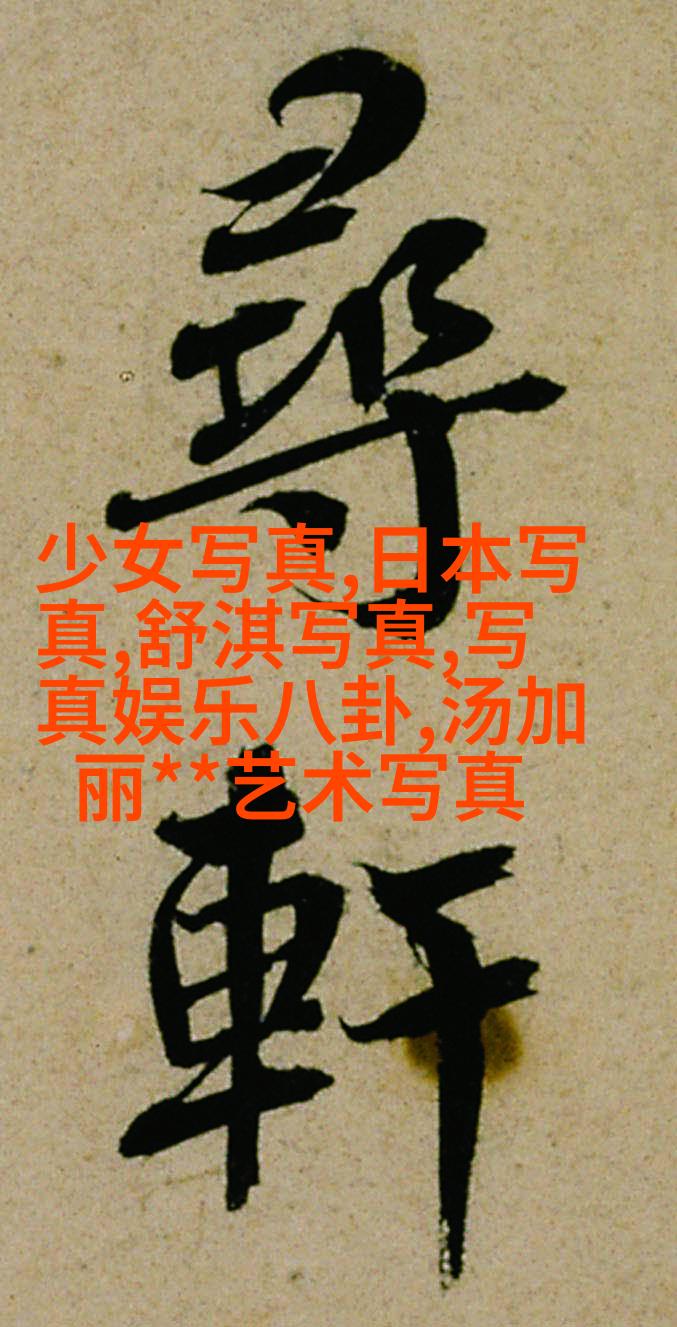 尋軒
少女写真,日本写
真,舒淇写真,写
真娱乐八卦,汤加
丽**艺术写真